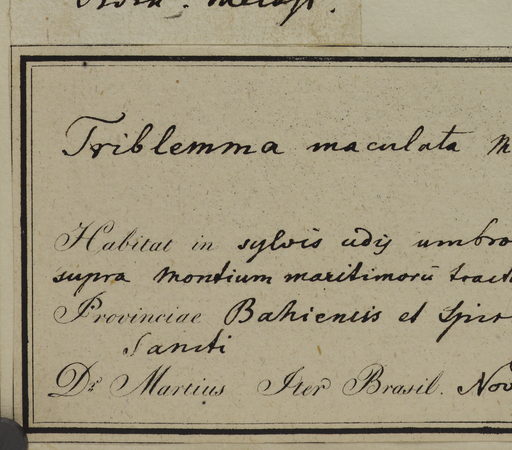 Triblemma maculata M
Habitat in sylvis udis umbro
supra montium maritimorū tract
Provinciae Bahiensis et Spir
Sancti
Dr. Martius Iter Brasil. Nov